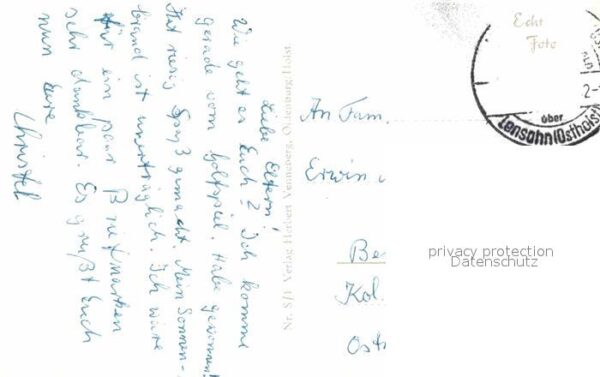 Liebe Eltern!
Wie geht es Euch? Ich komme
gerade vom Golfspiel. Habe gewonnen!
Hat riesig Spaß gemacht. Mein Sonnen-
brand ist unerträglich. Ich wäre
für ein paar Briefmarken
sehr dankbar. Es grüßt Euch
nun Eure
Christel
Nr. S/1 Verlag Herbert Venneberg, Oldenburg/Holst.
Echt
Foto
über
Lensahn(Ostholst
2-
An Fam.
Erwin
Be
Kol.
Ost
privacy protection
Datenschutz